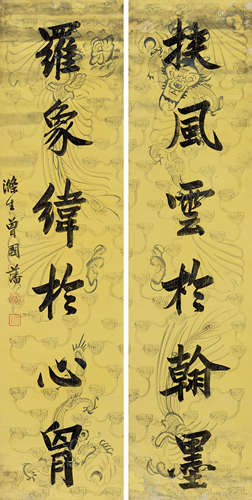 扶風雲於翰墨
羅象緯於心胷
滌生曾國藩